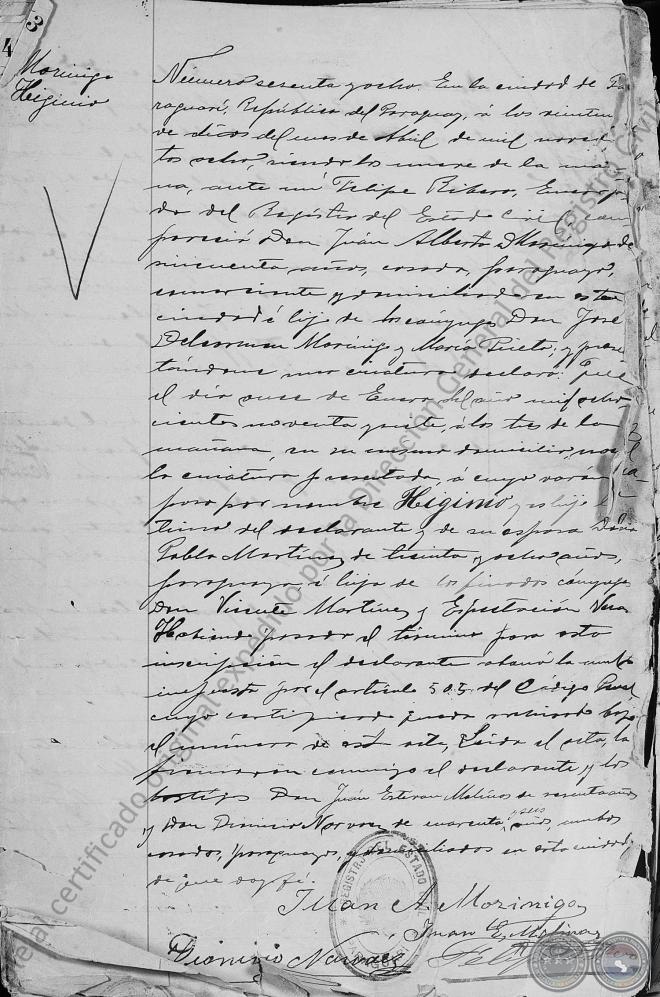 3
4
Morinigo
Higinio
Número sesenta y ocho. En la ciudad de Pa
raguarí, República del Paraguay, á los veintiu
ve dias del mes de Abril de mil novecien
tos ocho, siendo las nueve de la maña
na, ante mí Felipe Ribero, Encarga
do del Registro del Estado Civil, com
pareció Don Juán Alberto Morinigo, de
cincuenta años, casado, paraguayo,
comerciante y domiciliado en esta
ciudad é hijo de los cónyuges Don José
Morinigo y María Prieto; y presen
tándome una criatura declaró: Que
el día once de Enero del año mil ocho
cientos noventa y siete, á las tres de la
mañana, en su mismo domicilio, nació
la criatura presentada, á cuyo varón
puso por nombre Higinio y es hijo
timo del declarante y de su esposa Doña
Pabla Martínez de treinta y ocho años,
paraguaya é hija de los finados cónyuges
Don Vicente Martínez y Espectación Vera
Habiendo pasado el término para esta
inscripción el declarante abonó la multa
impuesta por el artículo 505 del Código Penal
cuyo certificado queda archivado bajo
el número de esta acta. Leida el acta, la
firmaron conmigo el declarante y los
testigos Don Juán Estevan Molinas de sesenta años
y Don Dionicio Narvaez de cuarenta y seis años, ambos
casados, paraguayos, y domiciliados en esta ciudad
de que doy fé.
Juan A. Morinigo
Juan E. Molinas
Dionicio Narvaez
REGISTRO DEL ESTADO CIVIL
certificado original expedido por la Dirección General del Registro Civil